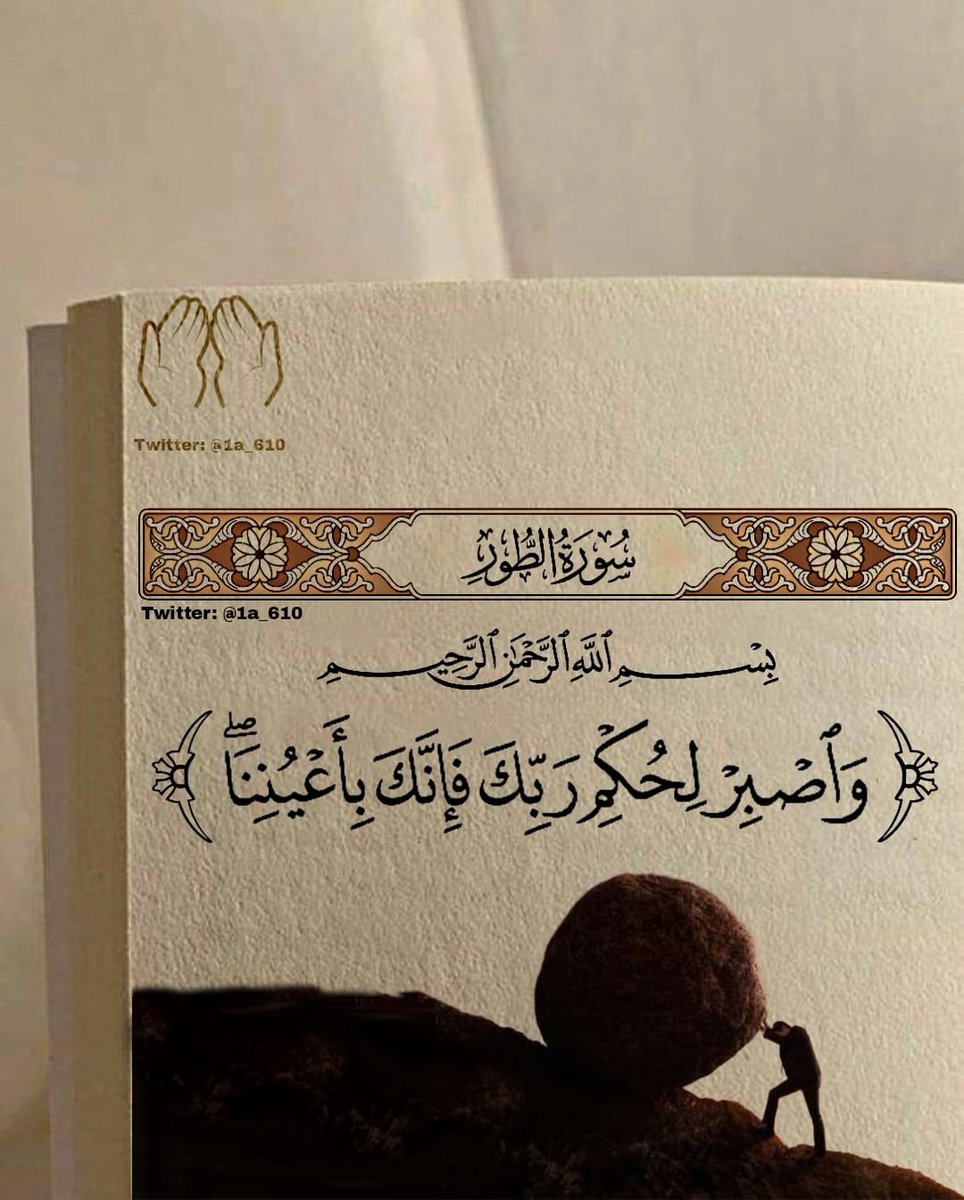 Twitter: @1a_610
سُورَةُ الطُّورِ
Twitter: @1a_610
بِسْمِ ٱللَّهِ ٱلرَّحْمَٰنِ ٱلرَّحِيمِ
﴿ وَٱصْبِرْ لِحُكْمِ رَبِّكَ فَإِنَّكَ بِأَعْيُنِنَاۖ ﴾